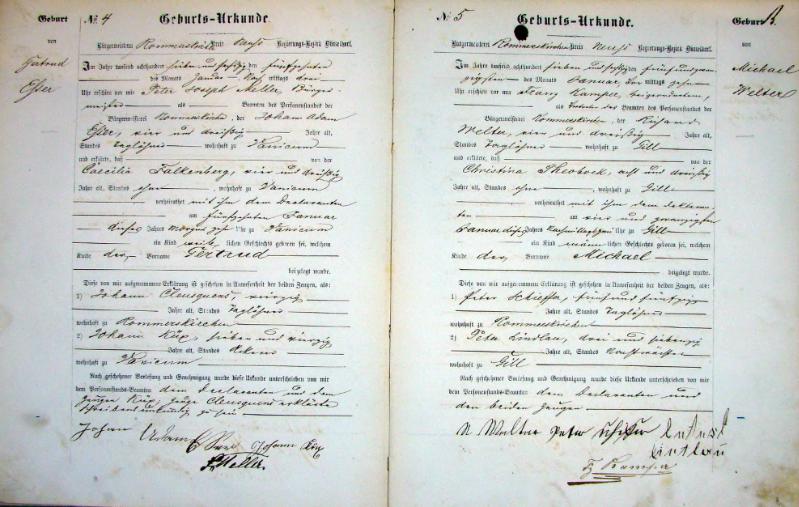 Geburt
von
Gertrud
Esser
№ 4 Geburts-Urkunde.
Bürgermeisterei Rommerskirchen Kreis Neuss Regierungs-Bezirk Düsseldorf.
Im Jahre tausend achthundert sieben und sechszig den fünfzehnten
des Monats Januar Nachmittags drei
Uhr erschien vor mir Peter Joseph Meller Bürger-
meister als Beamten des Personenstandes der
Bürgermeisterei Rommerskirchen, der Johann Adam
Esser, vier und dreißig Jahre alt,
Standes Taglöhner wohnhaft zu Vanicum
und erklärte, daß von der
Caecilia Falkenberg, vier und dreißig
Jahre alt, Standes ohne, wohnhaft zu Vanicum
verheirathet mit ihm dem Declaranten
am fünfzehnten Januar
dieses Jahres Morgens Uhr zu Vanicum
ein Kind weiblichen Geschlechts geboren sei, welchem
Kinde der Vorname Gertrud
beigelegt wurde.
Diese von mir aufgenommene Erklärung ist geschehen in Anwesenheit der beiden Zeugen, als:
1) Johann Cleusquens, vierzig
Jahre alt, Standes Taglöhner
wohnhaft zu Rommerskirchen
2) Johann Küp, sieben und vierzig
Jahre alt, Standes Ackerer
wohnhaft zu Vanicum
Nach geschehener Vorlesung und Genehmigung wurde diese Urkunde unterschrieben von mir
dem Personenstands-Beamten dem Declaranten und dem
Zeugen Küp, Zeuge Cleusquens erklärte
schreibensunkundig zu sein
Johann Adam Esser Johann Küp
P. Meller
№ 5 Geburts-Urkunde.
Bürgermeisterei Rommerskirchen Kreis Neuss Regierungs-Bezirk Düsseldorf.
Im Jahre tausend achthundert sieben und sechszig den fünf und zwan-
zigsten des Monats Januar Vormittags zehn
Uhr erschien vor mir Franz Kamper, Beigeordneten,
als Beamten des Personenstandes der
Bürgermeisterei Rommerskirchen, der
Welter, vier und dreißig Jahre alt,
Standes Taglöhner wohnhaft zu Gill
und erklärte, daß von der
Christina, acht und dreißig
Jahre alt, Standes ohne, wohnhaft zu Gill
verheirathet mit ihm dem Deklaran-
ten am vier und zwanzigsten
Januar dieses Jahres Uhr zu Gill
ein Kind männlichen Geschlechts geboren sei, welchem
Kinde der, Vorname Michael
beigelegt wurde.
Diese von mir aufgenommene Erklärung ist geschehen in Anwesenheit der beiden Zeugen, als:
1) Peter, fünf und fünfzig
Jahre alt, Standes Taglöhner
wohnhaft zu Rommerskirchen
2) Peter Lindlau, drei und siebenzig
Jahre alt, Standes
wohnhaft zu Gill
Nach geschehener Vorlesung und Genehmigung wurde diese Urkunde unterschrieben von mir
dem Personenstands-Beamten dem Declaranten und
den beiden Zeugen
Peter
Lindlau
Fz Kamper
Geburt
von
Michael
Welter